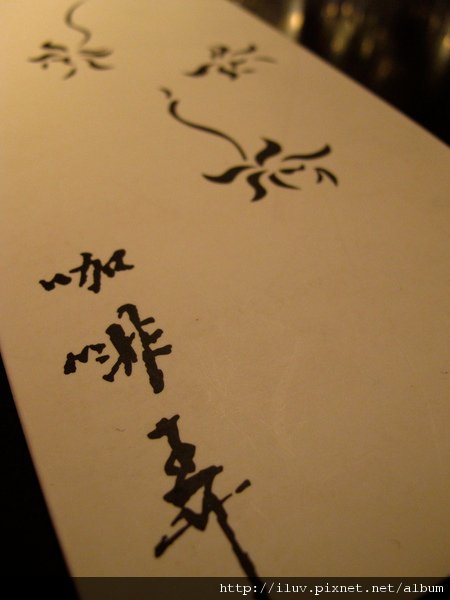 咖啡弄
http://iluv.pixnet.net/album